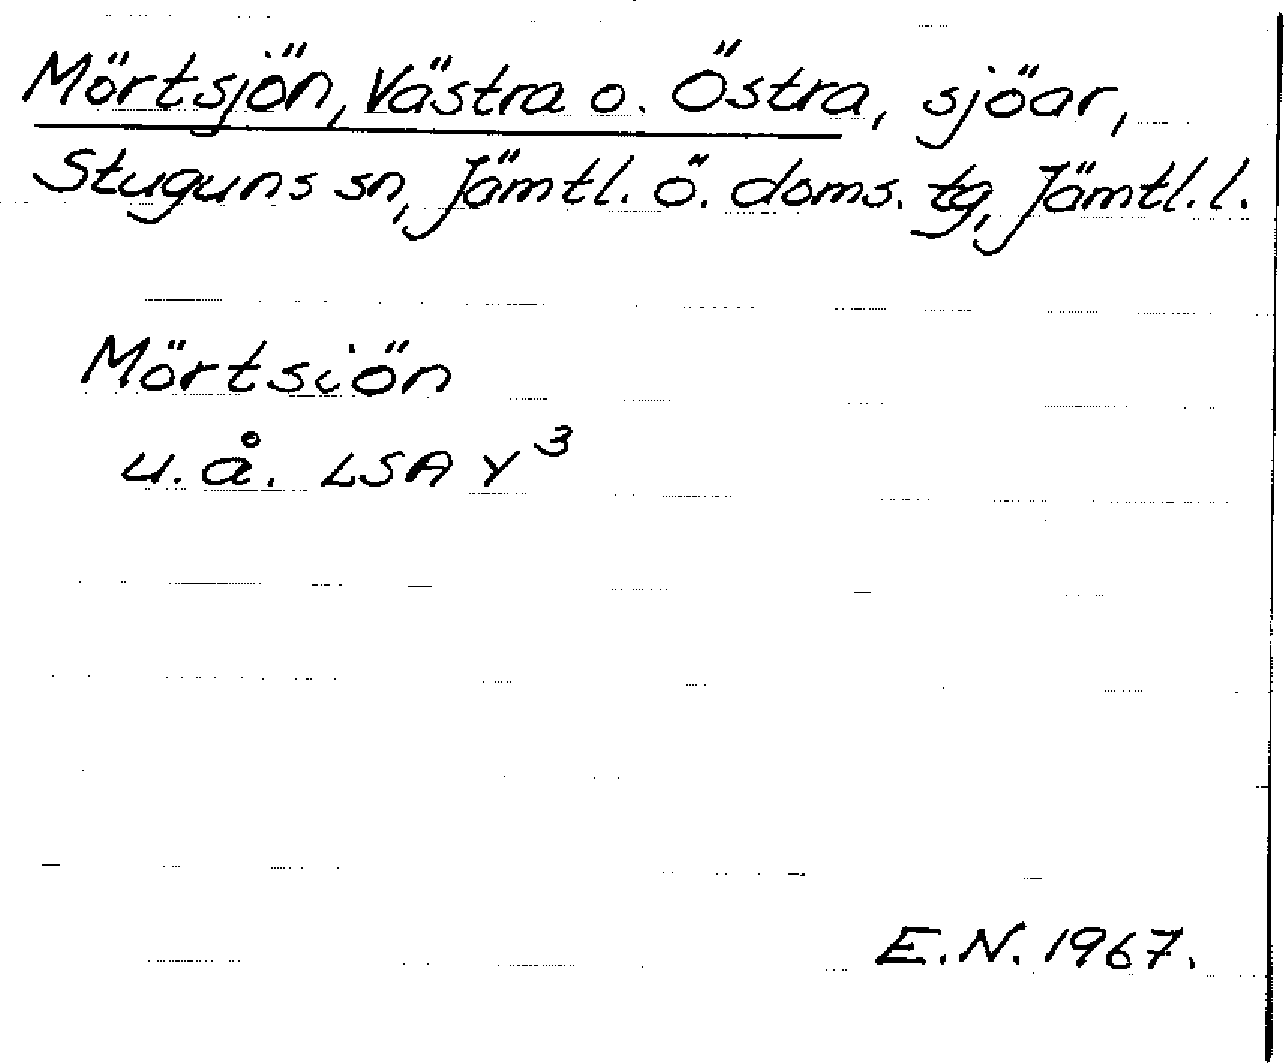 Mörtsjön, Västra o. Östra, sjöar,
Stuguns sn, Jämtl. ö. doms. tg, Jämtl. l.
Mörtsiön
u.å. LSA Y³
E.N. 1967.